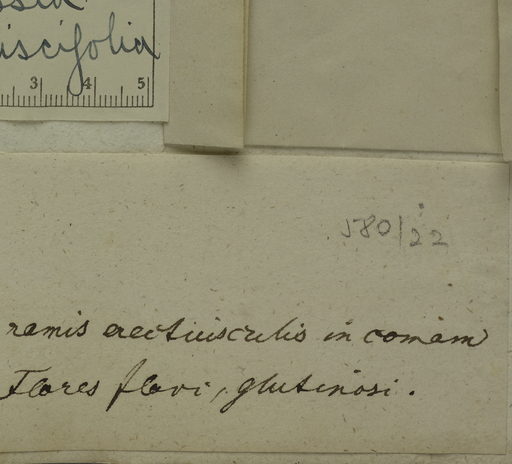 iscifolia
3 4 5
580/22
ramis erectiusculis in comam
Flores flavi, glutinosi.